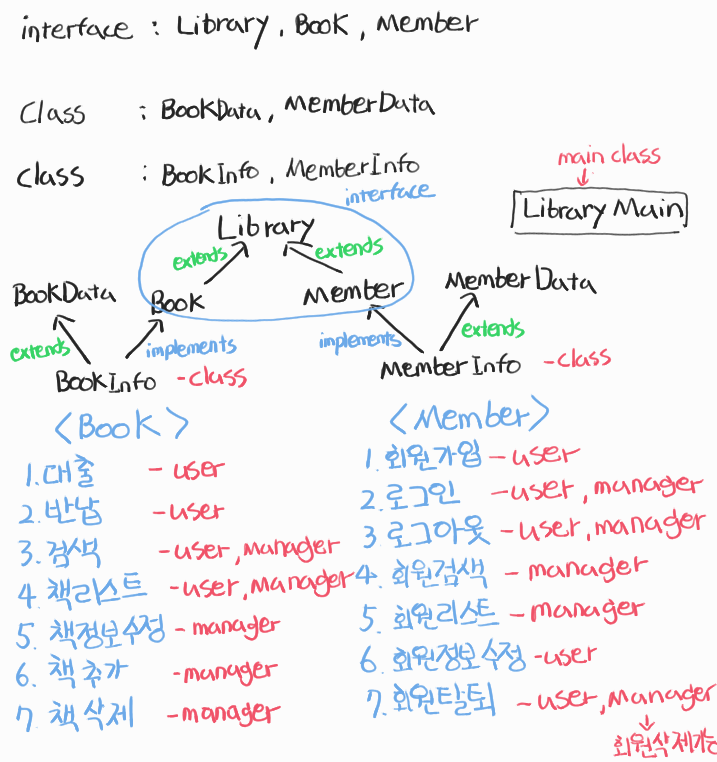 interface : Library, Book, Member
Class : BookData, MemberData
class : BookInfo, MemberInfo
main class
interface
Library Main
Library
extends extends
BookData Book Member MemberData
extends implements implements extends
BookInfo - class MemberInfo - class
<Book>
1. 대출 - user
2. 반납 - user
3. 검색 - user, manager
4. 책리스트 - user, manager
5. 책정보수정 - manager
6. 책 추가 - manager
7. 책 삭제 - manager
<Member>
1. 회원가입 - user
2. 로그인 - user, manager
3 로그아웃 - user, manager
4. 회원검색 - manager
5. 회원리스트 - manager
6. 회원정보수정 - user
7. 회원탈퇴 - user, manager
회원삭제가능